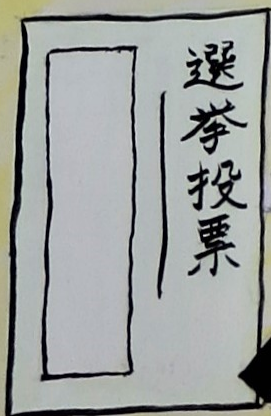 選挙投票